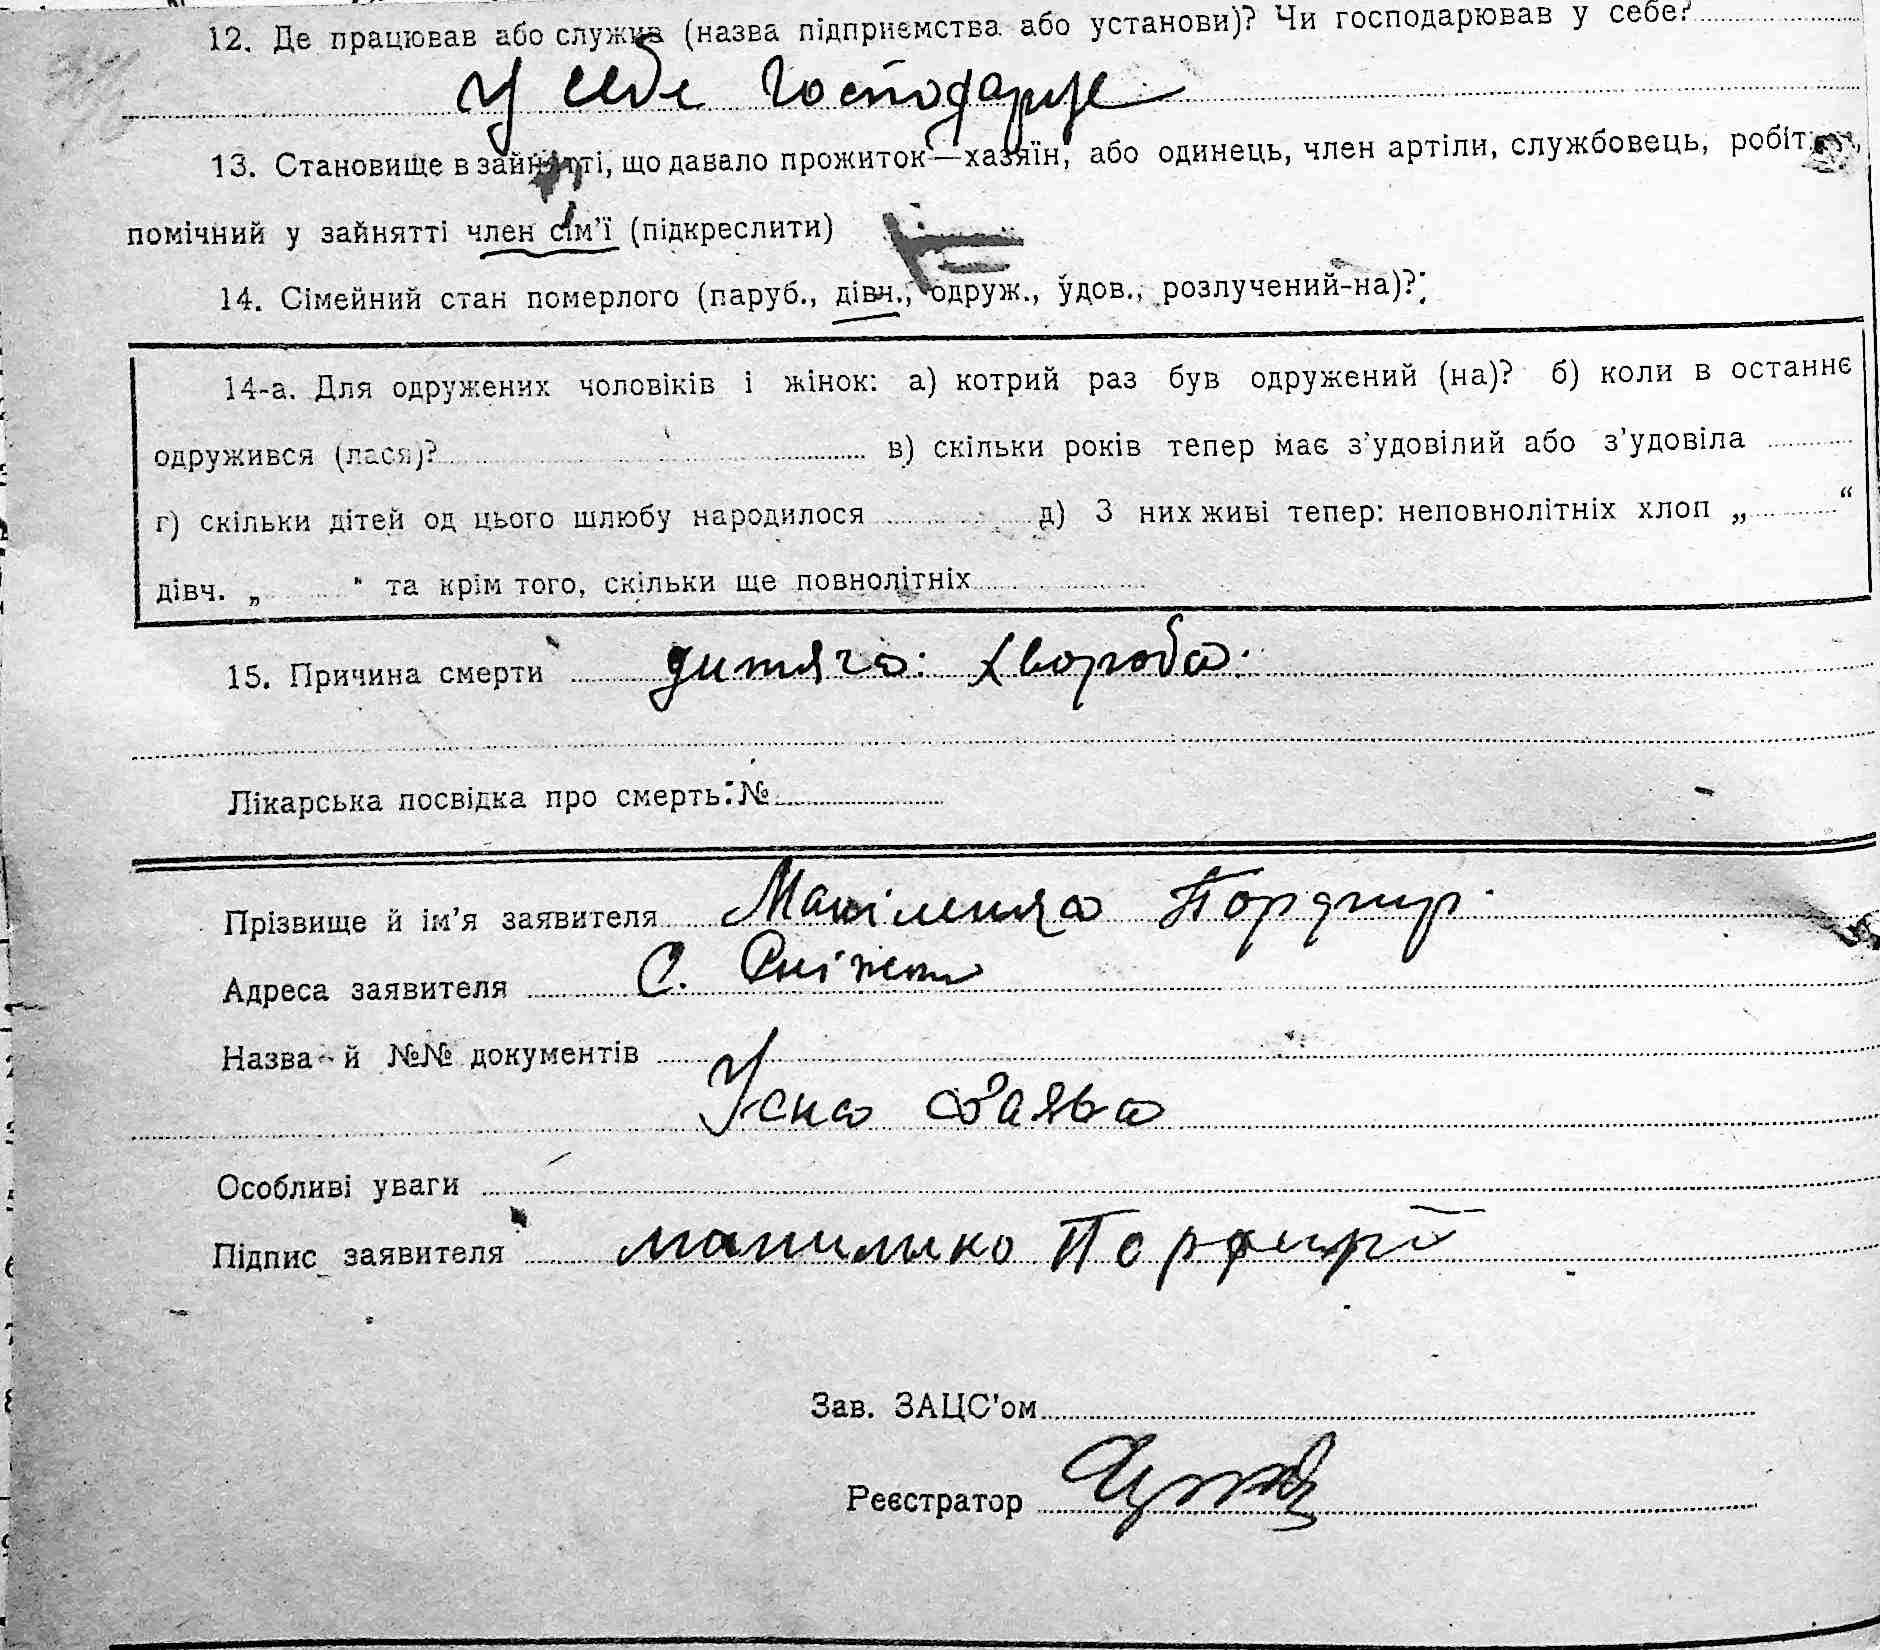 12. Де працював або служив (назва підприємства або установи)? Чи господарював у себе?
У себе господарує
13. Становище в зайнятті, що давало прожиток—хазяїн, або одинець, член артіли, службовець, робітн.,
помічний у зайнятті член сім'ї (підкреслити)
14. Сімейний стан померлого (паруб., дівч., одруж., удов., розлучений-на)?
14-а. Для одружених чоловіків і жінок: а) котрий раз був одружений (на)? б) коли в останнє
одружився (лася)? в) скільки років тепер має з'удовілий або з'удовіла
г) скільки дітей од цього шлюбу народилося д) З них живі тепер: неповнолітніх хлоп „ “
дівч. „ “ та крім того, скільки ще повнолітніх
15. Причина смерти дитяча хвороба.
Лікарська посвідка про смерть: №
Прізвище й ім'я заявителя Порфир
Адреса заявителя С.
Назва й №№ документів
Усна Заява
Особливі уваги
Підпис заявителя Порфирій
Зав. ЗАЦС'ом
Реєстратор